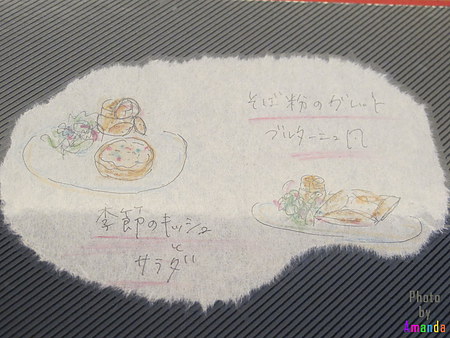 そば粉のガレット
ブルターニュ風
季節のキッシュ
と
サラダ
Photo
by
Amanda